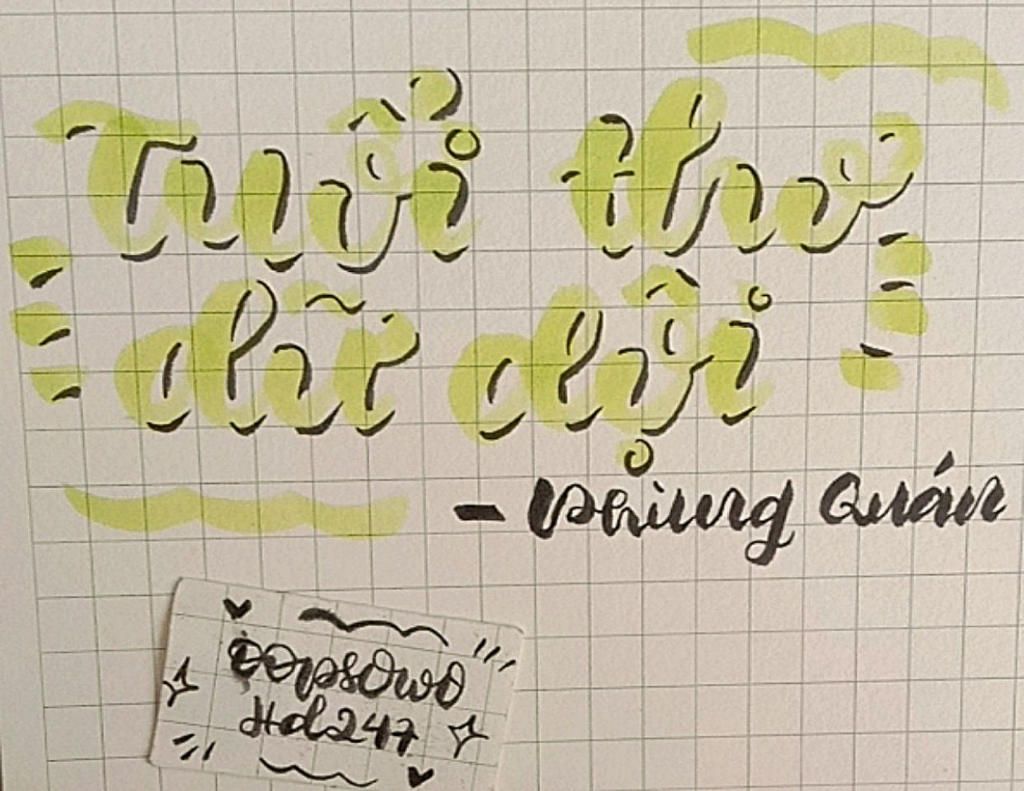 Tuổi thơ
dữ dội
- Phùng Quán
oopsOwO
Hd247